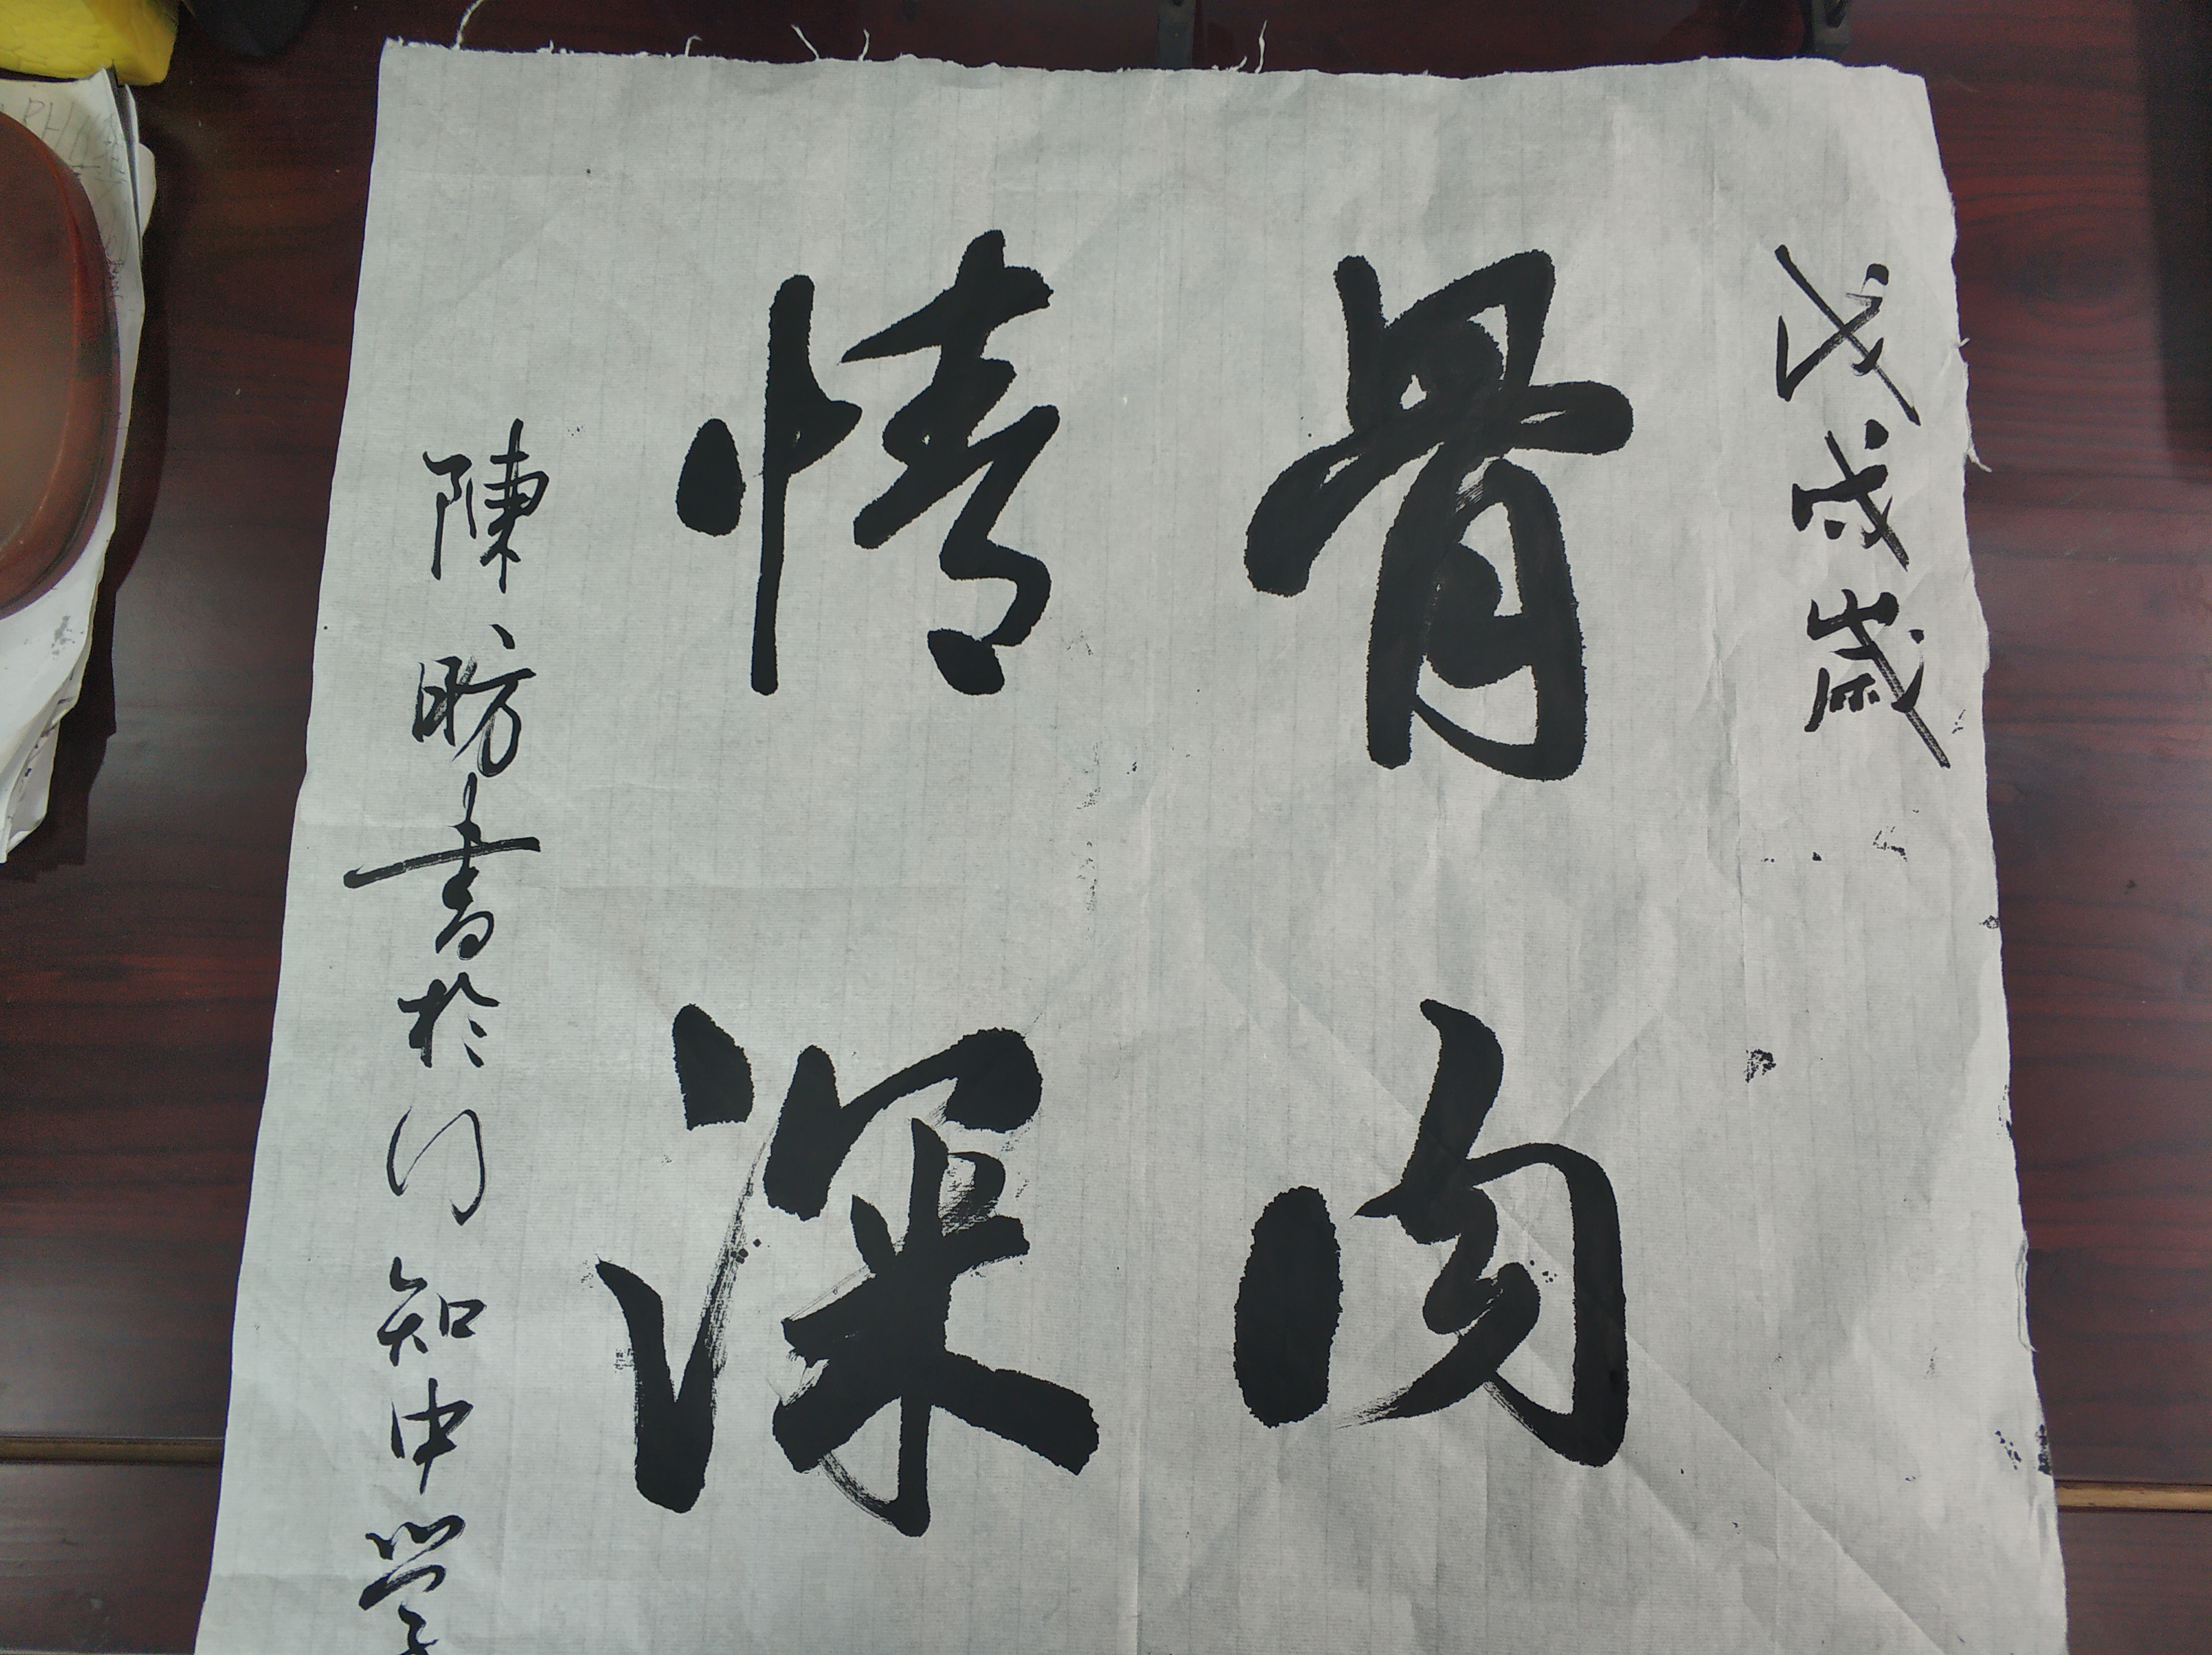 戊戌歲
骨肉
情深
陳昉書於行知中学